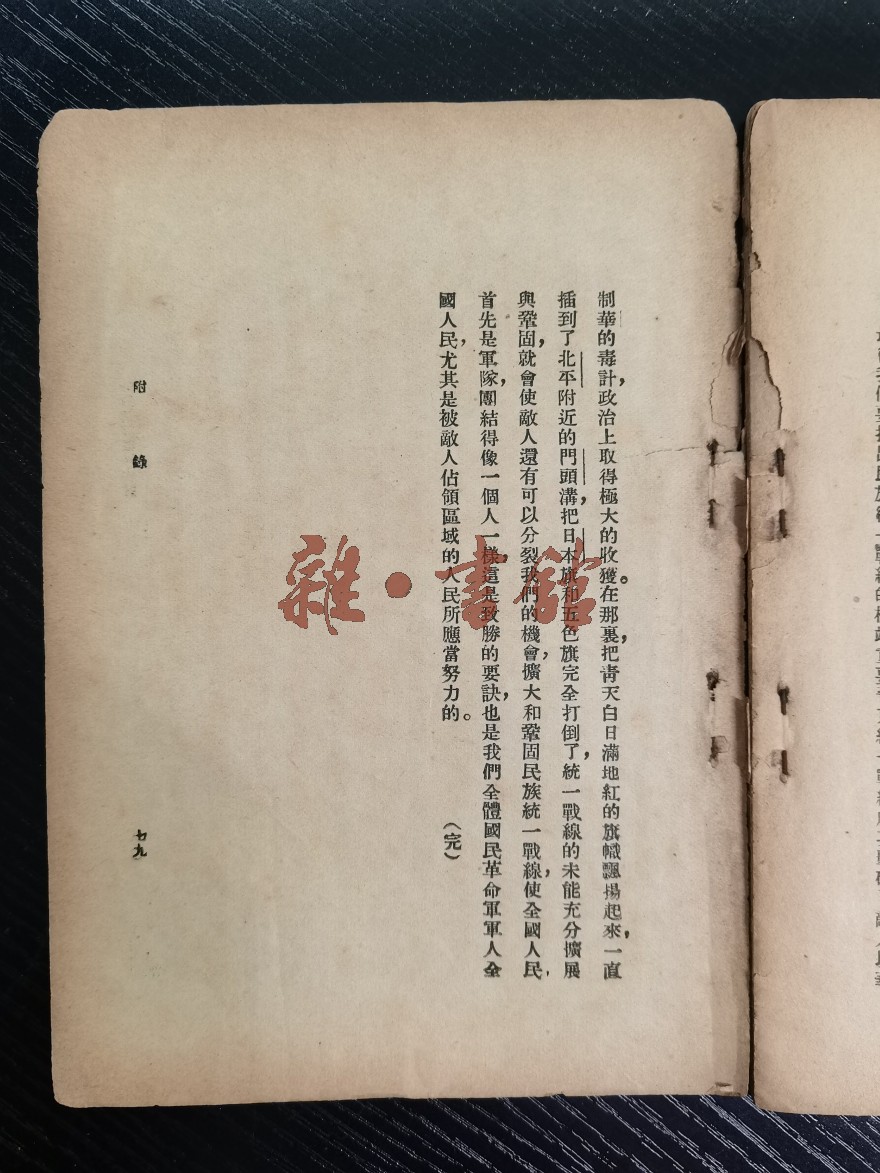 制華的毒計，政治上取得極大的收獲。在那裏，把青天白日滿地紅的旗幟飄揚起來，一直
插到了北平附近的門頭溝，把日本旗和五色旗完全打倒了，統一戰線的未能充分擴展
與鞏固，就會使敵人還有可以分裂我們的機會，擴大和鞏固民族統一戰線，使全國人民，
首先是軍隊，團結得像一個人一樣，這是致勝的要訣，也是我們全體國民革命軍軍人全
國人民，尤其是被敵人佔領區域的人民所應當努力的。（完）
附錄
七九
雜·書館